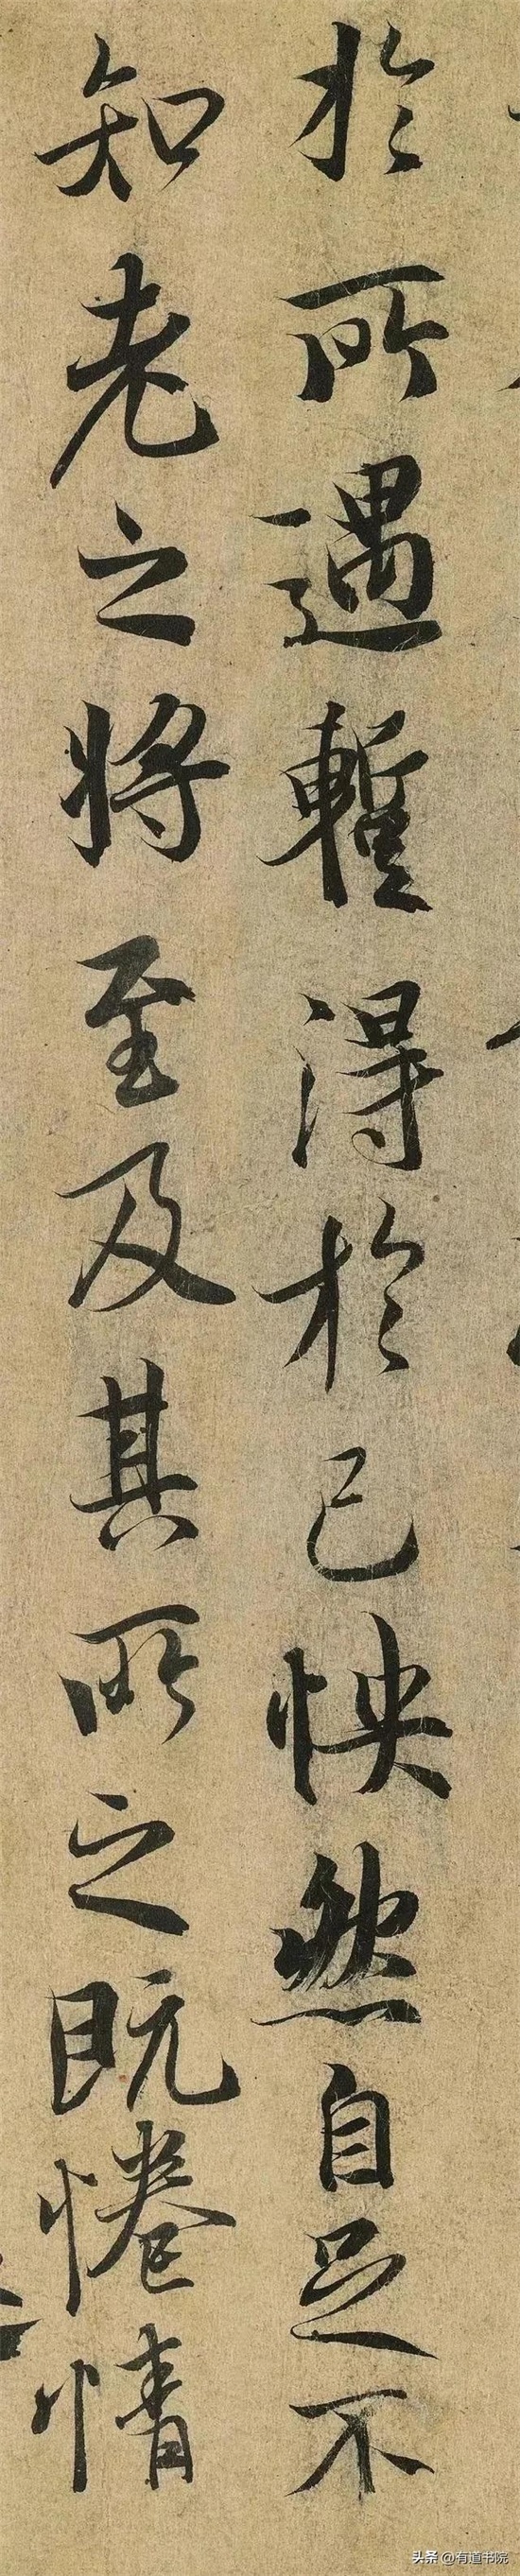 於所遇暫得於己怏然自足不
知老之將至及其所之既惓情
头条 @有道书院